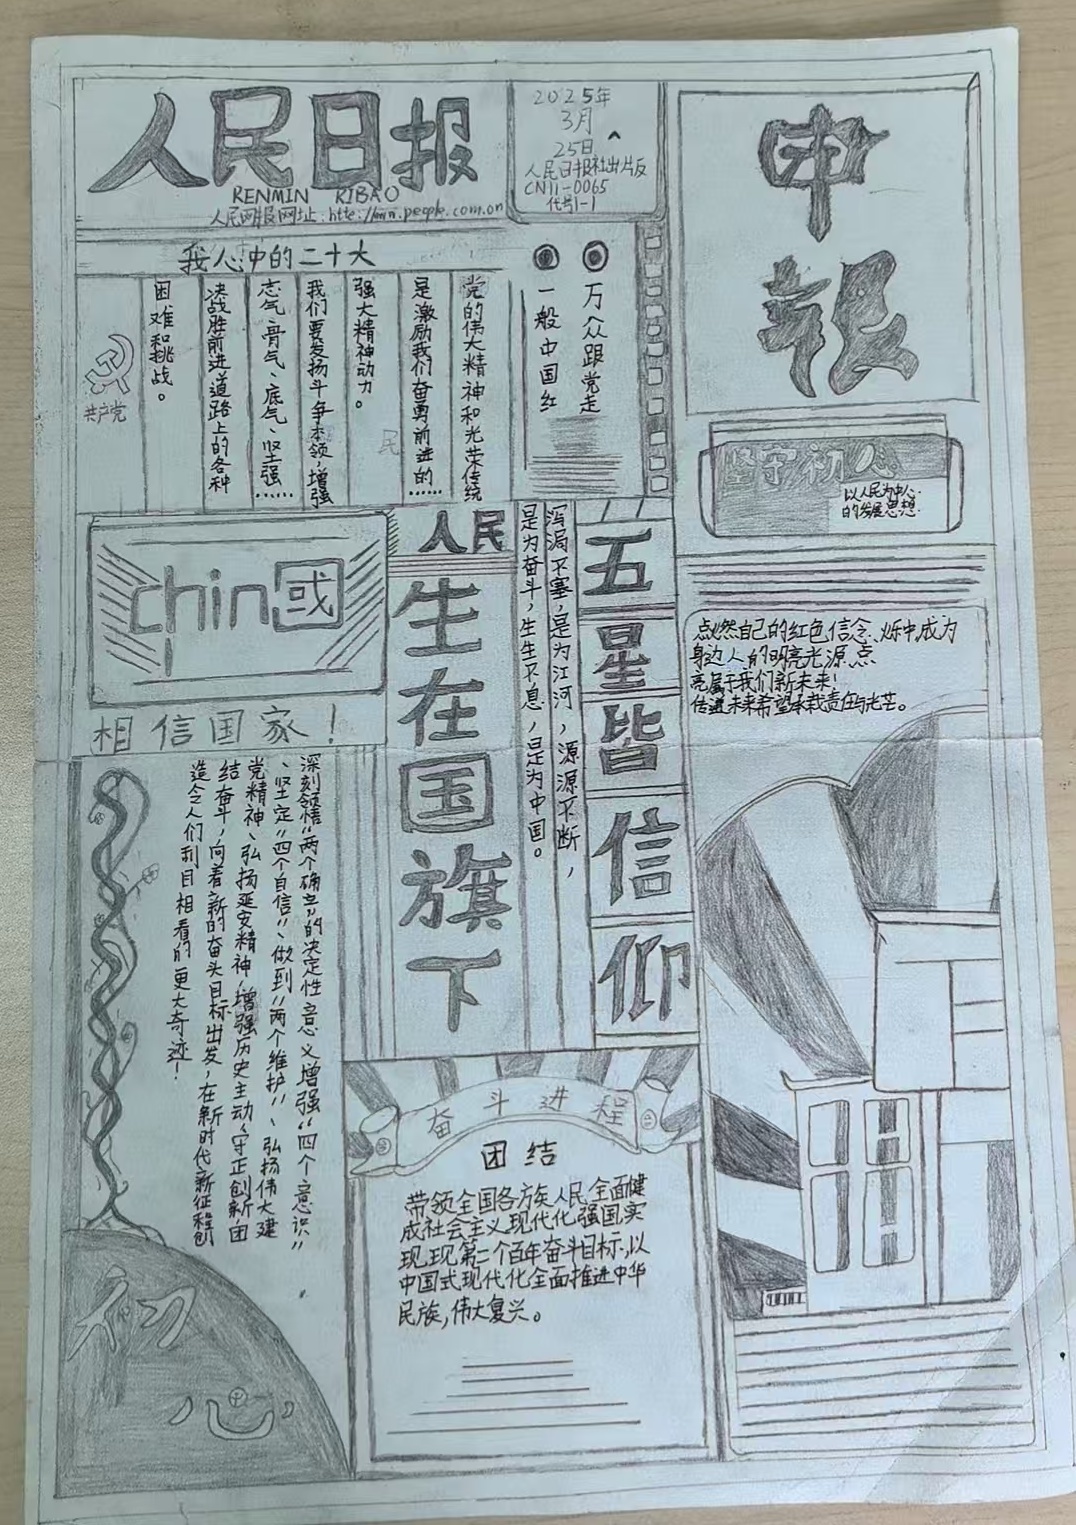 人民日报
RENMIN RIBAO
人民网报网址:http://www.people.com.cn
2025年
3月
25日
人民日报社出片反
CN11-0065
代号1-1
申
报
我心中的二十大
党的伟大精神和光荣传统
是激励我们奋勇前进的……
强大精神动力。
我们要发扬斗争本领,增强
志气、骨气、底气、坚强……
决战胜前进道路上的各种
困难和挑战。
共产党
民
万众跟党走
一般中国红
坚守初心
以人民为中心
的发展思想.
chin国
相信国家!
人民
生在国旗下
泻漏不塞,是为江河,源源不断,
是为奋斗,生生不息,是为中国。
五星皆信仰
点燃自己的红色信念、烁中成为
身边人的明亮光源点
亮属于我们新未来!
传道未来希望承载责任与光芒。
深刻领悟"两个确立"的决定性意义增强"四个意识"
、坚定"四个自信"、做到"两个维护"、弘扬伟大建
党精神、弘扬延安精神,增强历史主动,守正创新团
结奋斗,向着新的奋头目标出发,在新时代新征程创
造令人们刮目相看的更大奇迹!
初
心
奋斗进程
团结
带领全国各方族人民全面健
成社会主义现代化强国,实
现现第二个百年奋斗目标,以
中国式现代化全面推进中华
民族,伟大复兴。